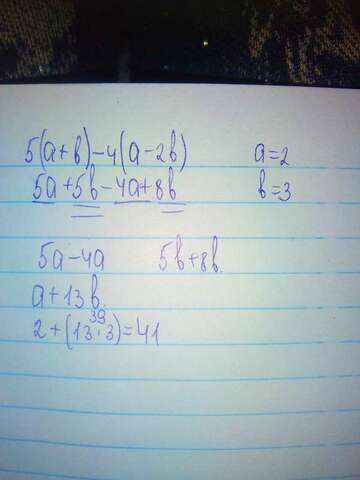 5(a+b)-4(a-2b) a=2
5a+5b-4a+8b b=3
5a-4a 5b+8b.
a+13b.
39
2+(13·3)=41